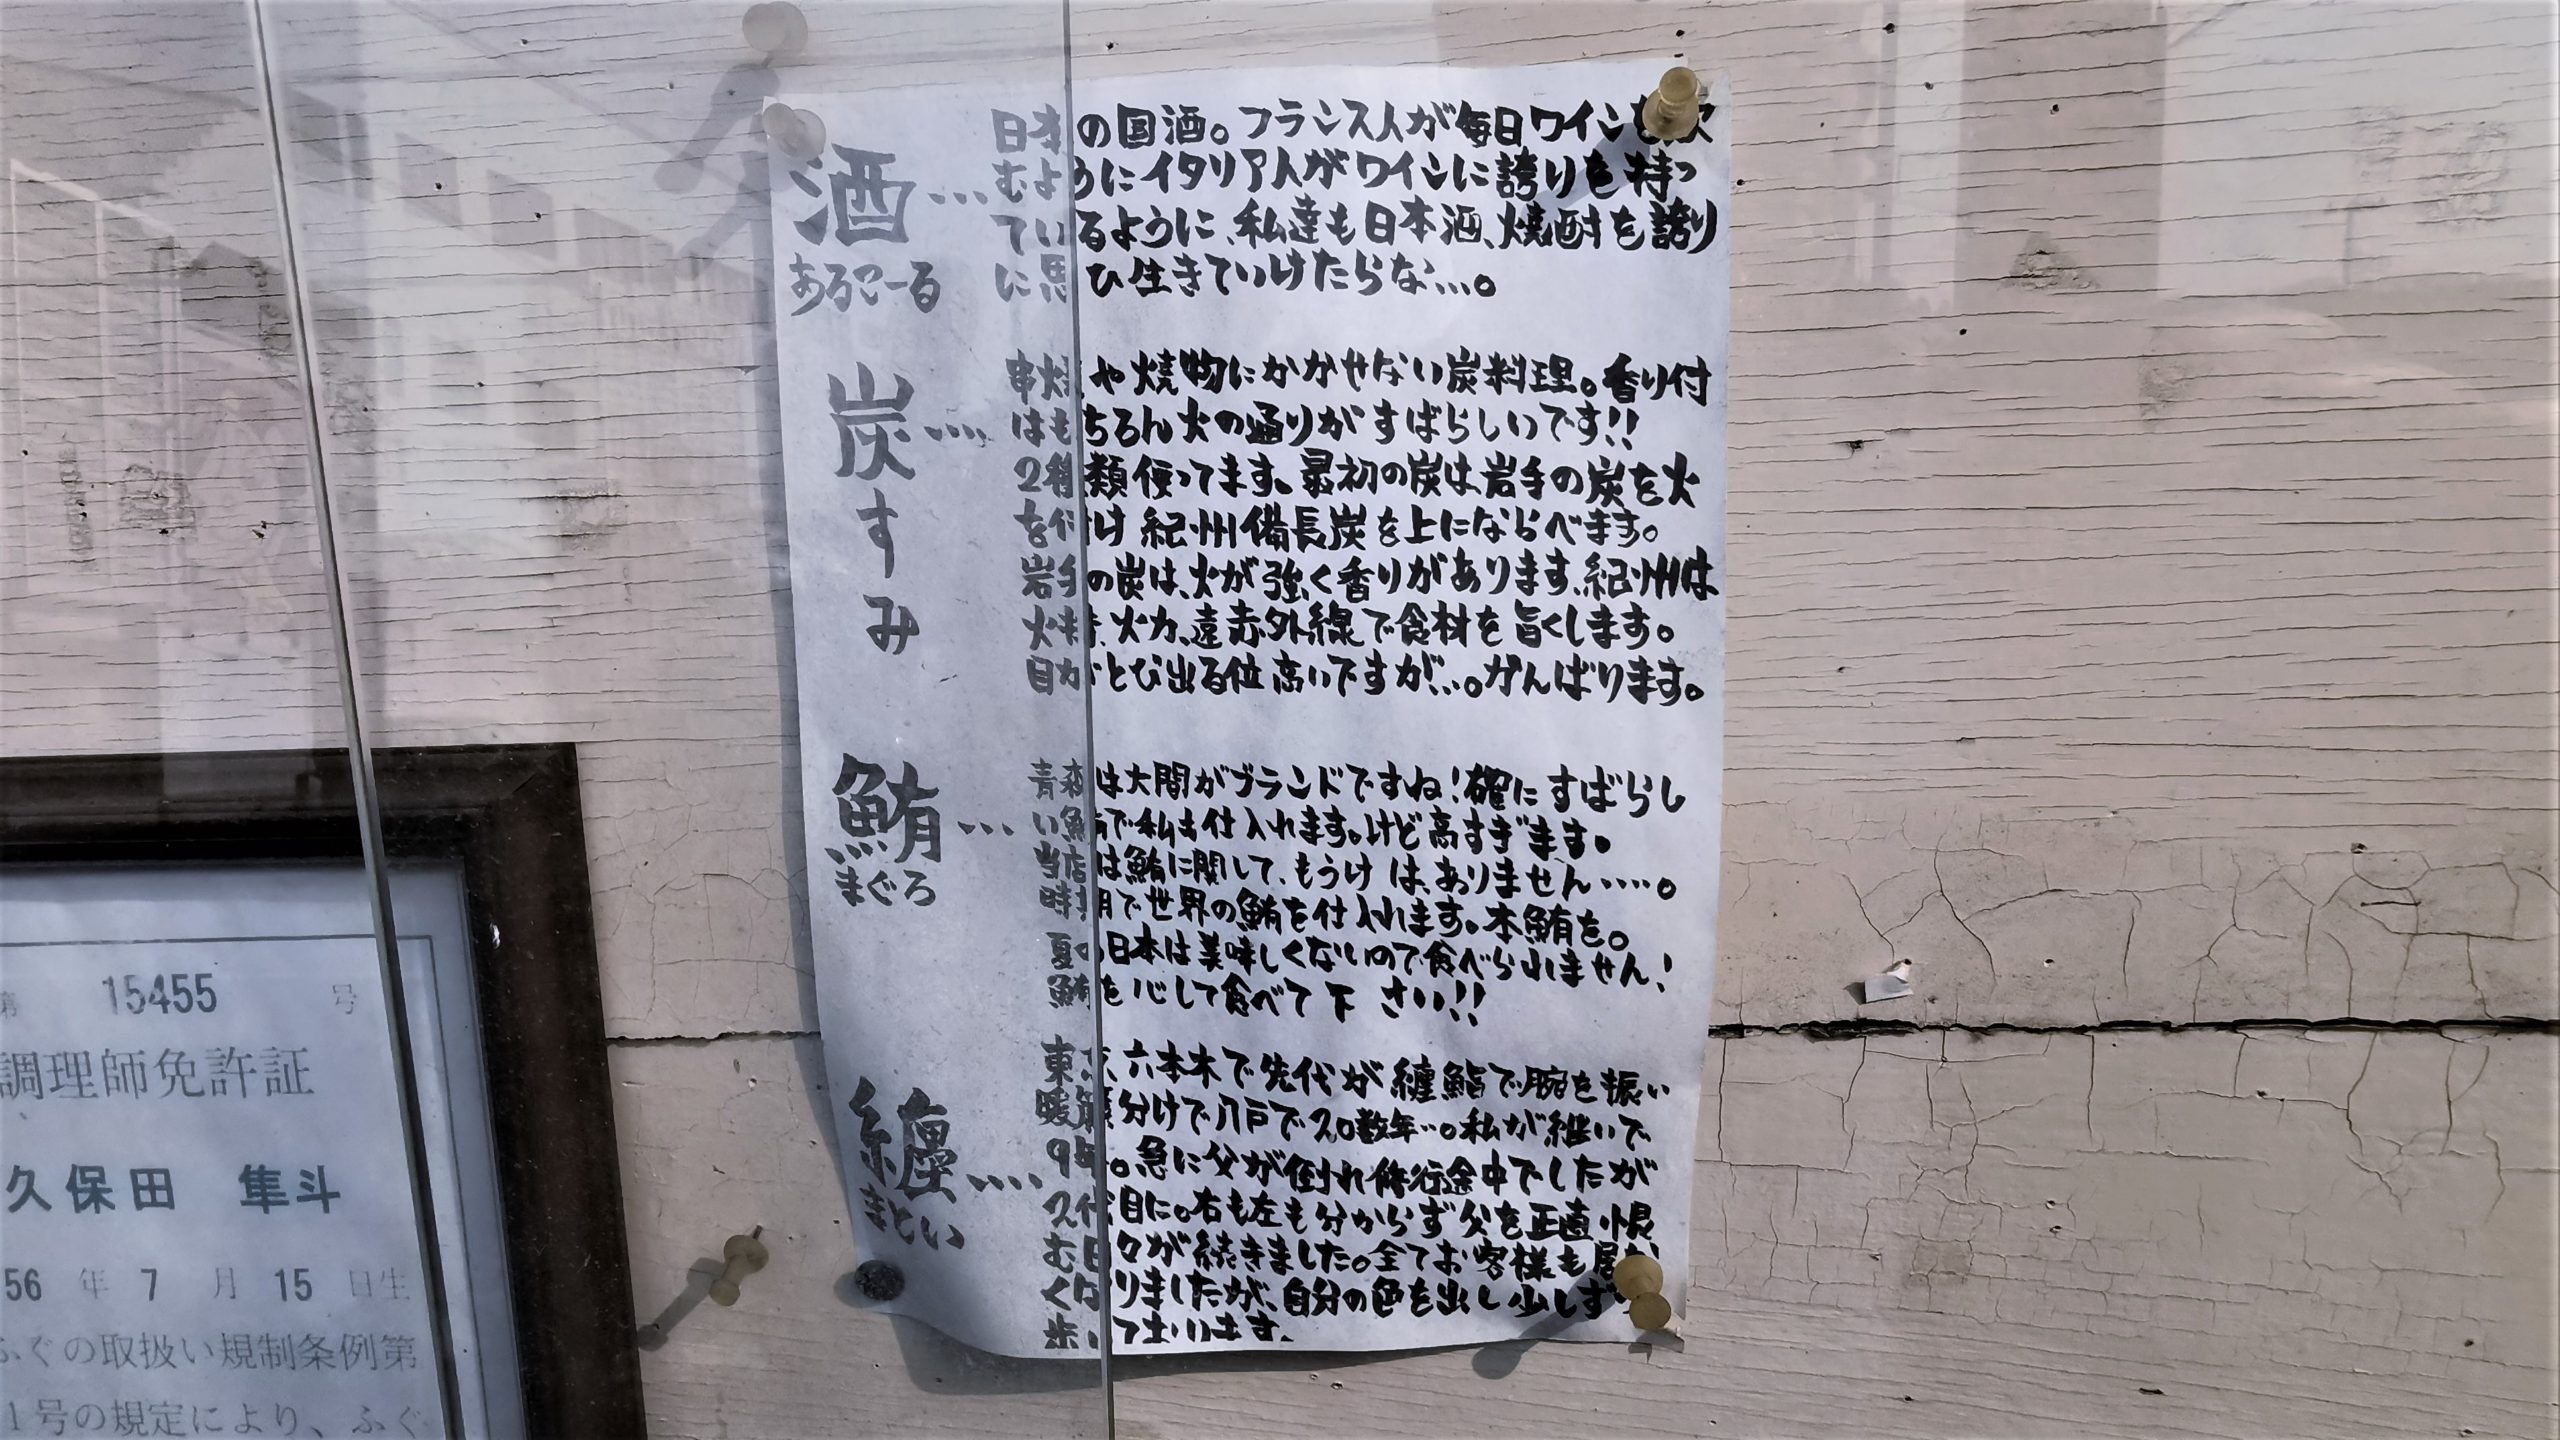 酒…
あるこーる
日本の国酒。フランス人が毎日ワインを飲
むようにイタリア人がワインに誇りを持っ
ているように、私達も日本酒、焼酎を誇り
に思ひ生きていけたらな…。
炭すみ….
串焼や焼物にかかせない炭料理。香り付
はもちろん火の通りがすばらしいです!!
2種類使ってます。最初の炭は岩手の炭を火
を付け 紀州備長炭を上にならべます。
岩手の炭は、火が強く香りがあります。紀州は
火持、火力、遠赤外線で食材を旨くします。
目がとび出る位高いですが…。がんばります。
鮪…
まぐろ
青森は大間がブランドですね!確にすばらし
い鮪で私も仕入れます。けど高すぎます。
当店は鮪に関して、もうけは、ありません….。
時期で世界の鮪を仕入れます。本鮪を。
夏の日本は美味しくないので食べられません!
鮪を心して食べて下さい!!
纏….
まとい
東京六本木で先代が纏鮨で腕を振い
暖簾分けで八戸で20数年…。私が継いで
9年。急に父が倒れ修行途中でしたが
2代目に。右も左も分からず父を正直恨
む日々が続きました。全てお客様も居な
くなりましたが、自分の色を出し少しずつ
歩いてまいります。
第 15455 号
調理師免許証
久保田 隼斗
56 年 7 月 15 日生
ふぐの取扱い規制条例第
1号の規定により、ふぐ